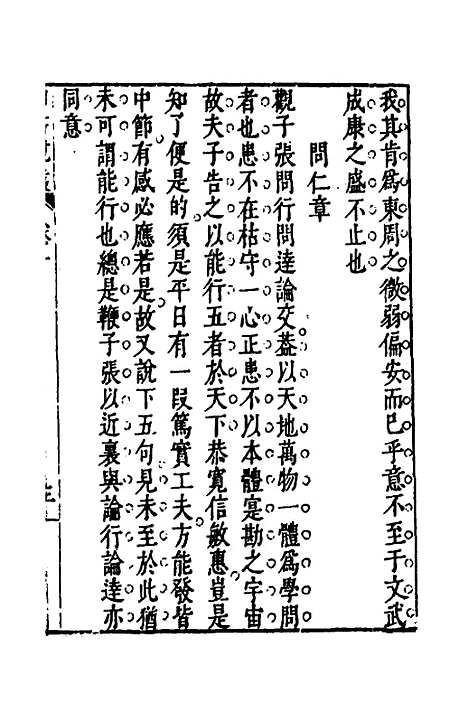 我其肯爲東周之微弱偏安而已乎意不至于文武
成康之盛不止也
問仁章
觀子張問行問達論交葢以天地萬物一體爲學問
者也患不在枯守一心正患不以本體寔勘之宇宙
故夫子告之以能行五者於天下恭寬信敏惠豈是
知了便是的須是平日有一段篤實工夫方能發皆
中節有感必應若是故又說下五句見未至於此猶
未可謂能行也總是鞭子張以近裏與論行論達亦
同意